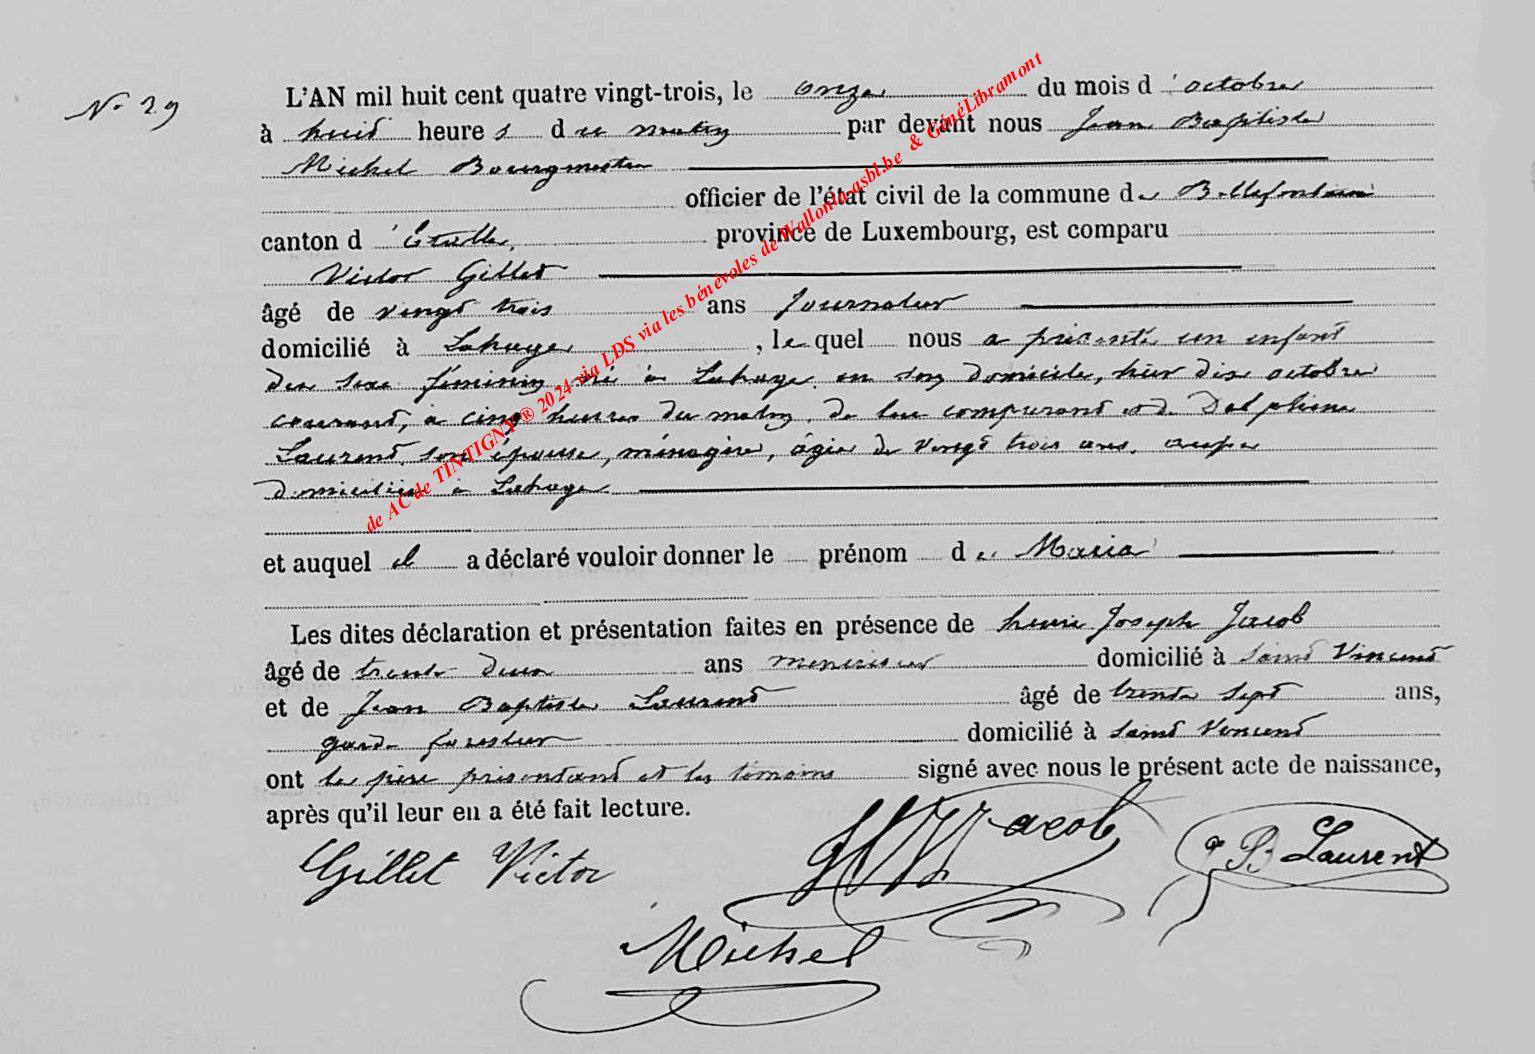 N° 29
L'AN mil huit cent quatre vingt-trois, le onze du mois d'octobre
à huit heures du matin par devant nous Jean Baptiste
Michel Bourgmestre
officier de l'état civil de la commune de Bellefontaine
canton d'Etalle, province de Luxembourg, est comparu
Victor Gillet
âgé de vingt trois ans Journalier
domicilié à Lahage, lequel nous a présenté un enfant
du sexe féminin né à Lahage en son domicile, hier dix octobre
courant, à cinq heures du matin, de lui comparant et de Delphine
Laurent, son épouse, ménagère, âgée de vingt trois ans, aussi
domiciliée à Lahage
et auquel il a déclaré vouloir donner le prénom de Maria
Les dites déclaration et présentation faites en présence de henri Joseph Jacob
âgé de trente deux ans menuisier domicilié à Saint Vincent
et de Jean Baptiste Laurent âgé de trente sept ans,
garde forestier domicilié à Saint Vincent
ont le père présentant et les témoins signé avec nous le présent acte de naissance,
après qu'il leur en a été fait lecture.
Gillet Victor
Jacob
J B Laurent
Michel
de AC de TINTIGNY® 2024 via LDS via les bénévoles de Wallonia-asbl.be & GénéLibramont